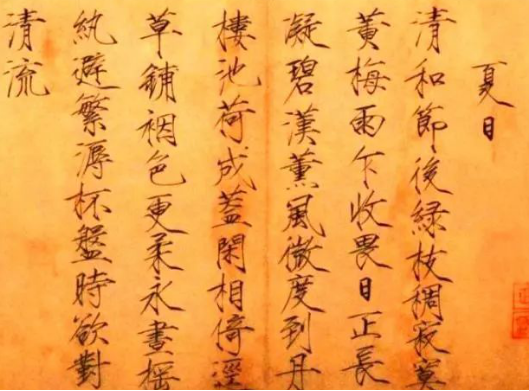 夏日
清和節後緑枝稠寂寞
黄梅雨乍收畏日正長
凝碧漢薫風微度到丹
樓池荷成蓋閑相倚逕
草鋪裀色更柔永晝揺
紈避繁溽杯盤時欲對
清流